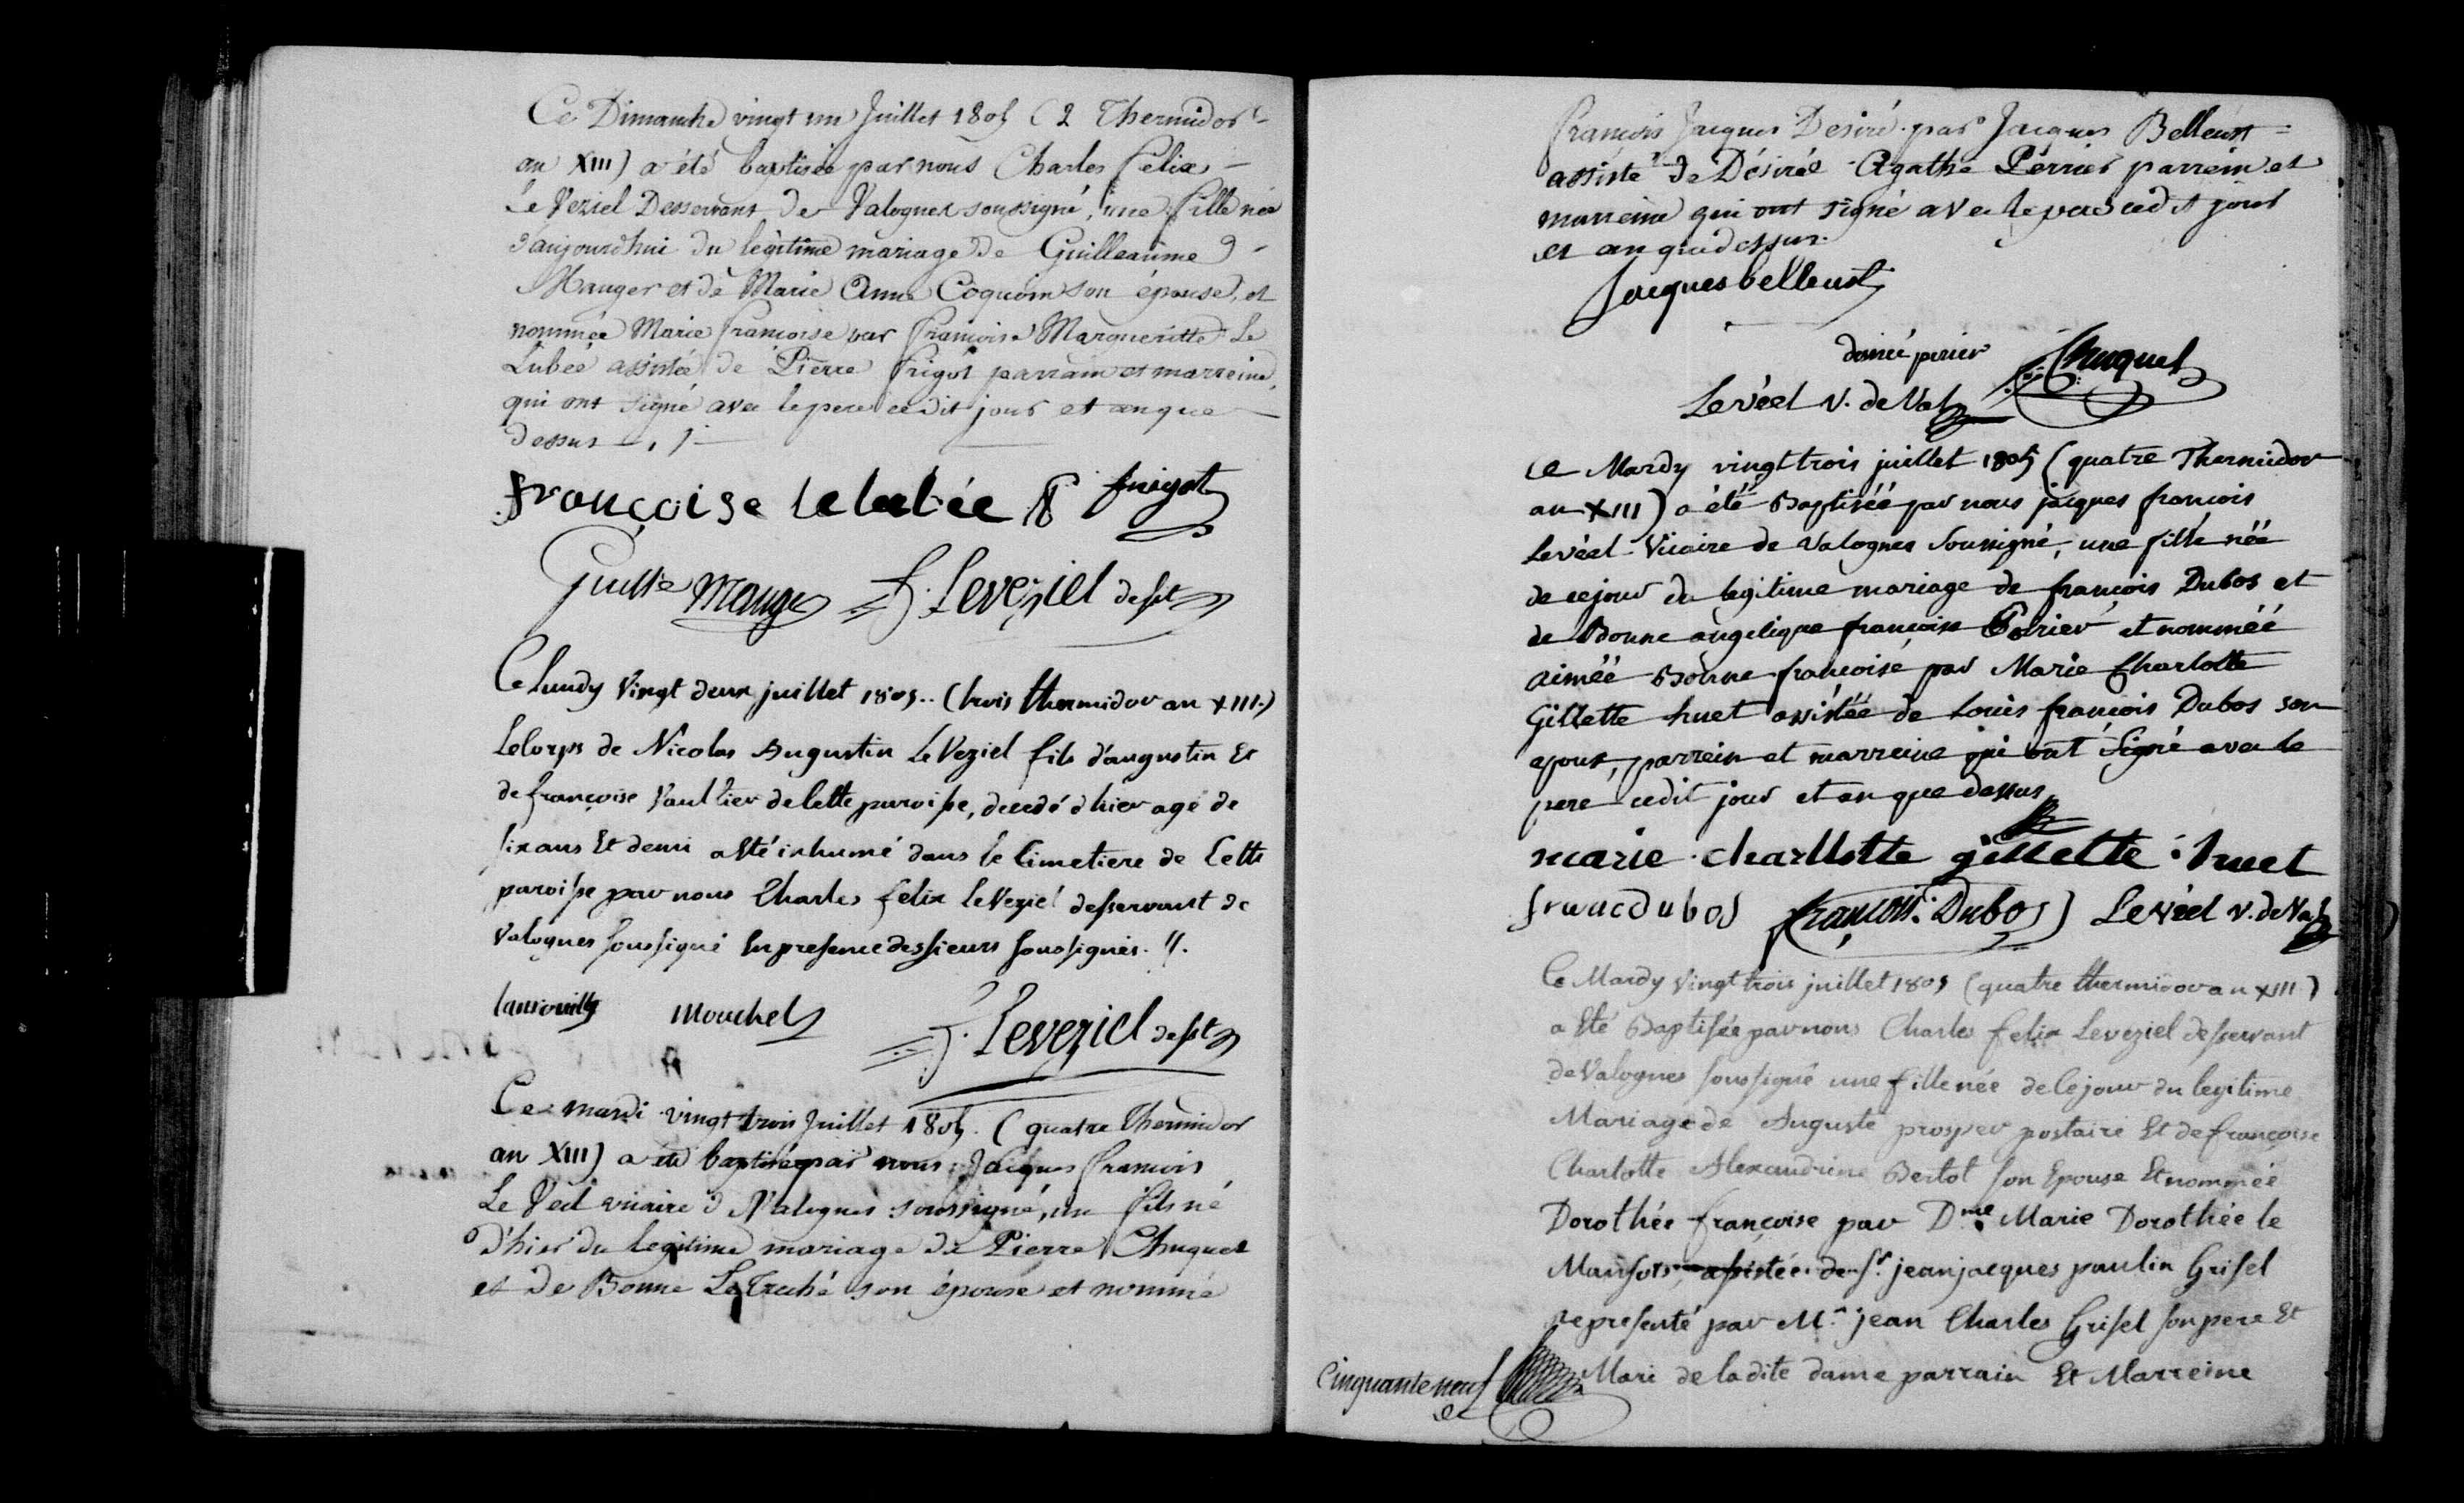 Ce Dimanche vingt un Juillet 1805 (2 Thermidor
an XIII) a été baptisée par nous Charles Felix
Le Veziel Desservant de Valognes soussigné, une fille née
d'aujourdhui du legitime mariage de Guilleaume
Mauger et de Marie Anne Coquoin son épouse, et
nommée Marie francoise par francoise Margueritte Le
Lubée assistée de Pierre frigot parrain et marreine,
qui ont signé avec le pere cedit jour et an que
dessus
françoise lelubée P frigot
Guille Mauger f. Leveziel desst
Ce lundy vingt deux juillet 1805.. (trois thermidor an XIII.)
Le corps de Nicolas Augustin Le Veziel fils d'augustin Et
de françoise Vaultier de Cette paroisse, decedé d'hier agé de
six ans Et demi a Eté inhumé dans le Cimetiere de Cette
paroisse par nous Charles felix le Veziel desservant de
Valognes soussigné En presence des sieurs soussignés. //.
Mouchel f. Leveziel desst
Ce mardi vingt trois Juillet 1805. (quatre Thermidor
an XIII) a été baptisé par nous Jacques francois
Le Véel vicaire d Valognes soussigné, un fils né
d'hier du legitime mariage de Pierre Chuquet
et de Bonne Le Treché son épouse et nommé
françois Jacques Desiré par Jacques Belleust
assisté de Désirée Agathe Périer parrein et
marreine qui ont signé avec le pere cedit jour
et an que dessus.
Jacques belleust
desiré perier Chuquet
Levéel v. de Val
Ce Mardy vingt trois juillet 1805 (quatre Thermidor
an XIII) a été Baptiséé par nous jacques francois
Levéel Vicaire de Valognes Soussigné, une fille néé
de ce jour du legitime mariage de françois Dubos et
de Bonne angelique françoise Poirier et nomméé
aiméé Bonne françoise par Marie Charlotte
Gillette huet assistée de Louis françois Dubos son
epoux, parrein et marreine qui ont Signé avec le
pere cedit jour et an que dessus
marie charllotte gillette huet
francdubos françois Dubos Levéel v. de Val
Ce Mardy Vingt trois juillet 1805 (quatre thermidor an XIII)
a Eté Baptisée par nous Charles felix Leveziel desservant
de Valognes soussigné une fille née de Ce jour du legitime
Mariage de Auguste prosper postaire Et de françoise
Charlotte Alexandrine Bertot son Epouse Et nommée
Dorothée françoise par Dme Marie Dorothée le
Mansois assistée de Sr. jean jacques paulin Grisel
representé par Mr. jean Charles Grisel son pere Et
Mari de la dite dame parrain Et Marreine
Cinquante neuf